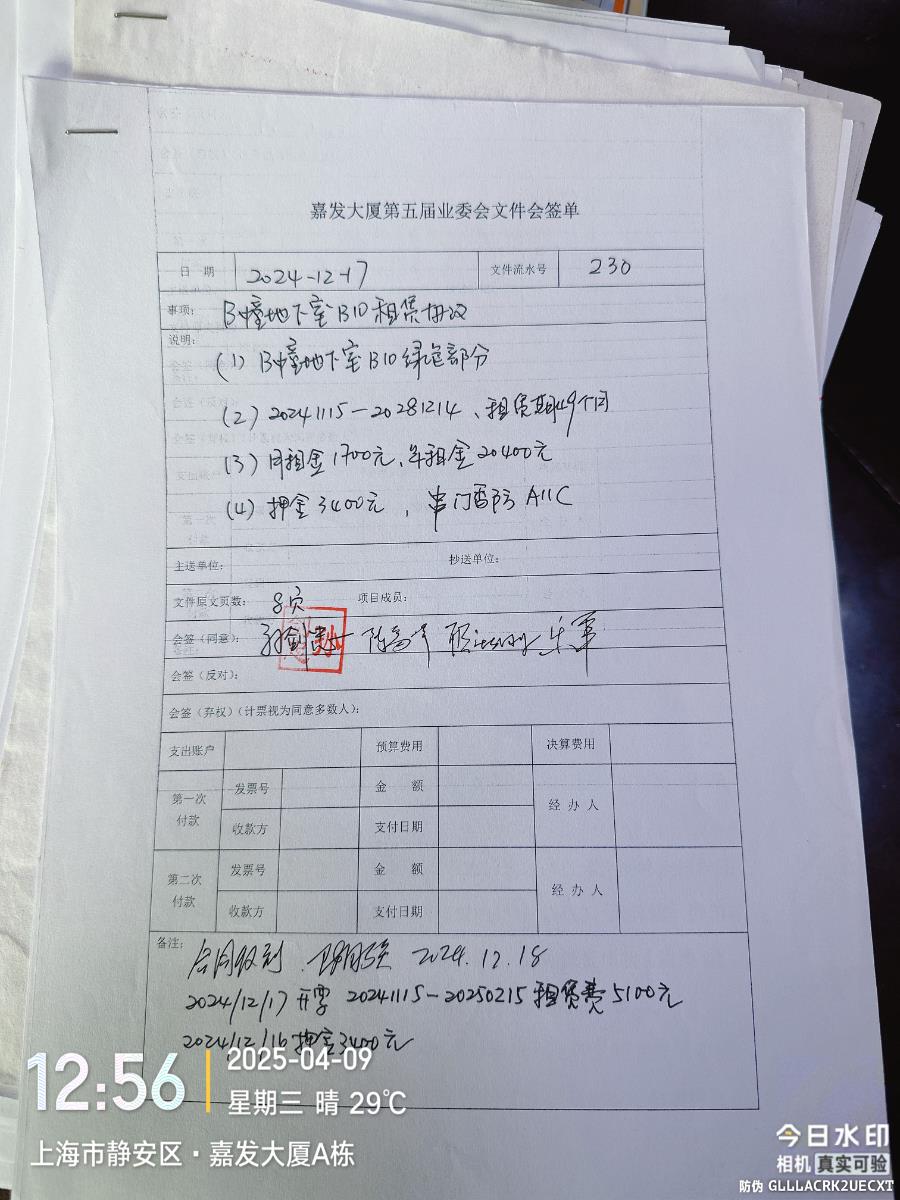 嘉发大厦第五届业委会文件会签单
日 期 2024-12-17 文件流水号 230
事项： B幢地下室B10租赁协议
说明：
(1) B幢地下室B10绿色部分
(2) 20241115-20281214、租赁期49个月
(3) 月租金1700元、年租金20400元
(4) 押金3400元， A11C
主送单位： 抄送单位：
文件原文页数： 8页 项目成员：
会签（同意）：
会签（反对）：
会签（弃权）（计票视为同意多数人）：
支出账户 预算费用 决算费用
第一次付款 发票号 金 额 经 办 人
收款方 支付日期
第二次付款 发票号 金 额 经 办 人
收款方 支付日期
备注：
合同收到. 2024.12.18
2024/12/17 开票 20241115-20250215 租赁费5100元
2024/12/16 押金3400元
12:56 2025-04-09
星期三 晴 29℃
上海市静安区·嘉发大厦A栋
今日水印
相机 真实可验
防伪 GLLLACRK2UECXT